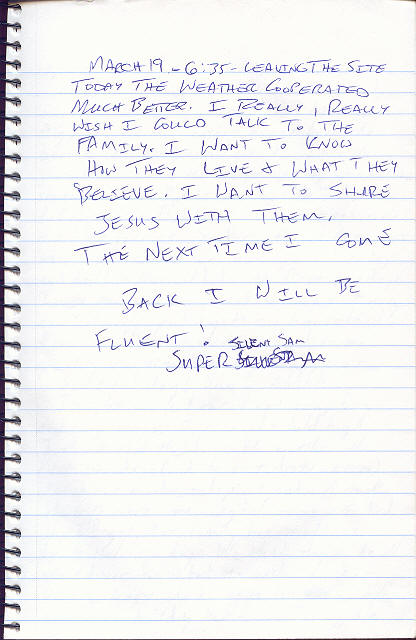 MARCH 19 - 6:35 - LEAVING THE SITE
TODAY THE WEATHER COOPERATED
MUCH BETTER. I REALLY, REALLY
WISH I COULD TALK TO THE
FAMILY. I WANT TO KNOW
HOW THEY LIVE & WHAT THEY
BELIEVE. I WANT TO SHARE
JESUS WITH THEM.
THE NEXT TIME I COME
BACK I WILL BE
FLUENT! SILENT SAM
SUPER